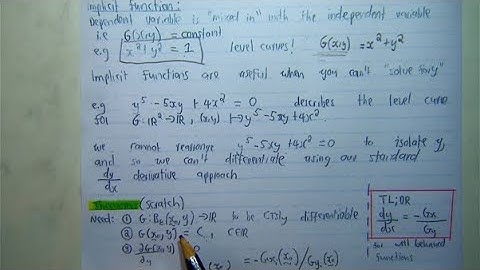 implicit function:
Dependent variable is "mixed in" with the independent variable
i.e G(x,y) = constant
e.g x²+y² = 1 level curves! G(x,y) = x²+y²
Implicit functions are useful when you can't "solve for y"
e.g y⁵-5xy+4x² = 0 describes the level curve
sol G:ℝ²→ℝ, (x,y) ↦ y⁵-5xy+4x².
we cannot rearrange y⁵-5xy+4x²=0 to isolate y,
and so we can't differentiate using our standard
dy/dx derivative approach.
Theorem (scratch)
Need: ① G: Bε(x₀,y) → ℝ to be ctsly differentiable
② G(x₀,y) = C, C∈ℝ
③ ∂G(x₀,y)/∂y 0
= -Gx(x₀)/Gy(x₀)
TL;DR
dy/dx = -Gx/Gy
for well behaved
functions